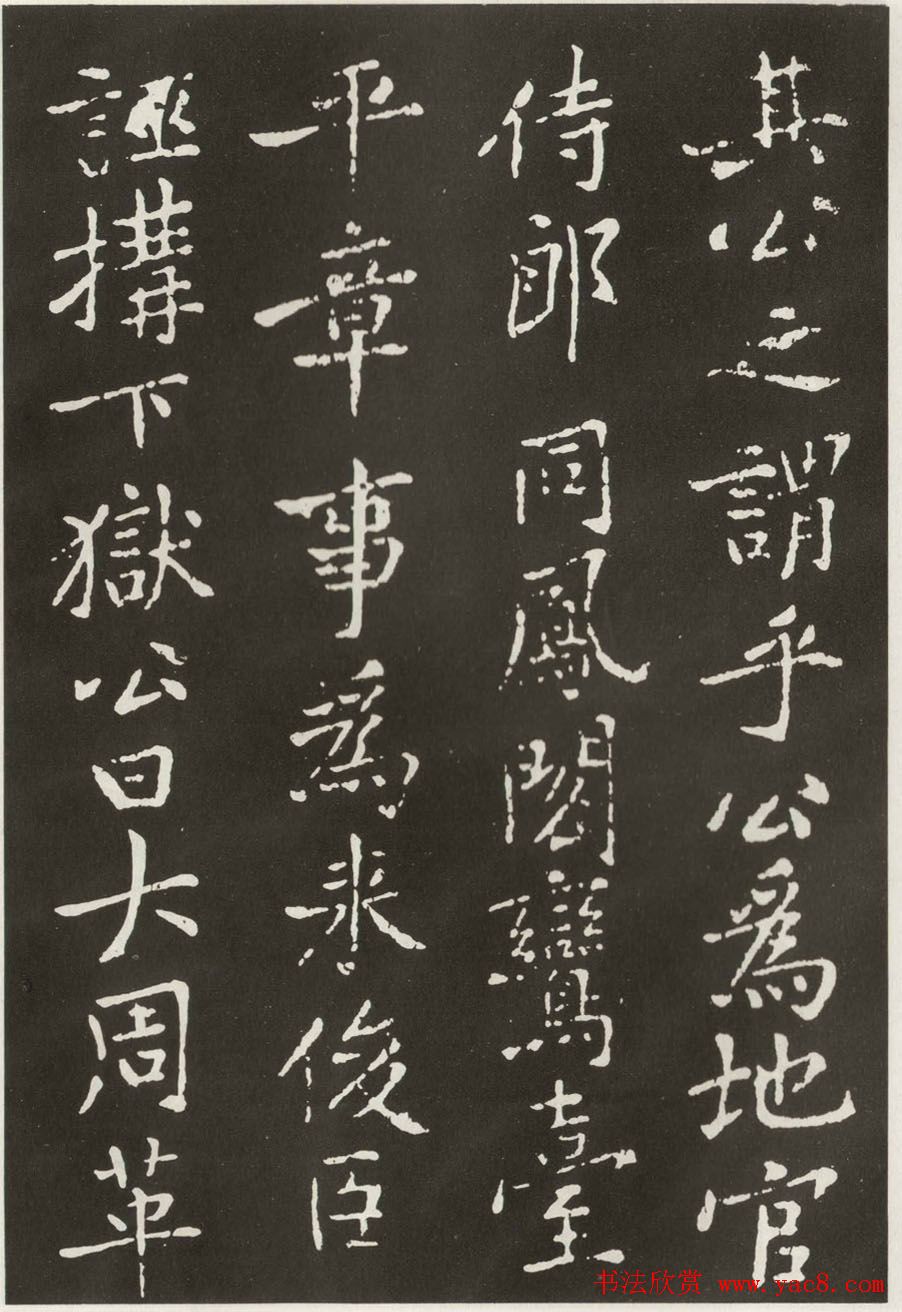 其公之謂乎公爲地官
侍郎同鳳閣鸞臺
平章事爲来俊臣
誣搆下獄公曰大周革
书法欣赏 www.yac8.com